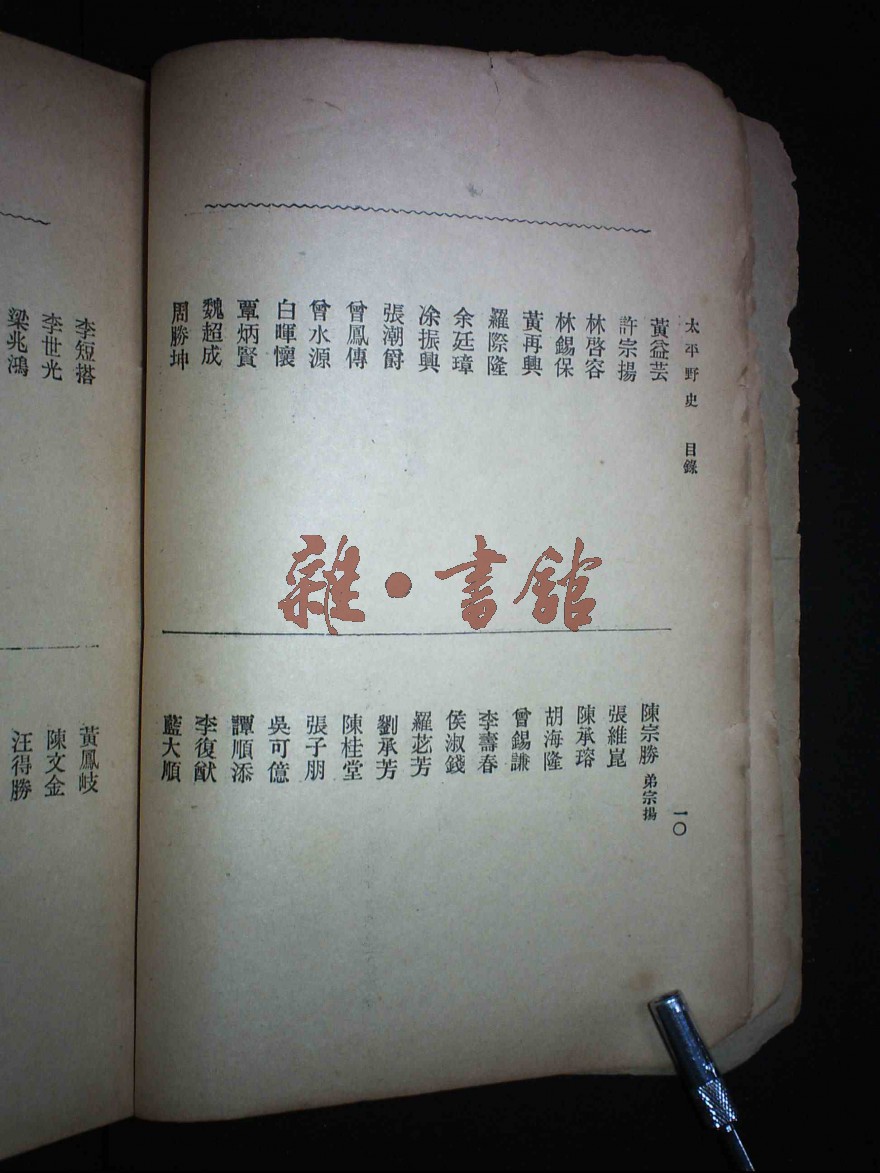 太平野史　目錄
一〇
黃益芸
許宗揚
林啓容
林錫保
黃再興
羅際隆
余廷璋
凃振興
張潮爵
曾鳳傳
曾水源
白暉懷
覃炳賢
魏超成
周勝坤
陳宗勝 弟宗揚
張維崑
陳承瑢
胡海隆
曾錫謙
李壽春
侯淑錢
羅苾芳
劉承芳
陳桂堂
張子朋
吳可億
譚順添
李復猷
藍大順
李短搭
李世光
梁兆鴻
黃鳳岐
陳文金
汪得勝
雜·書館